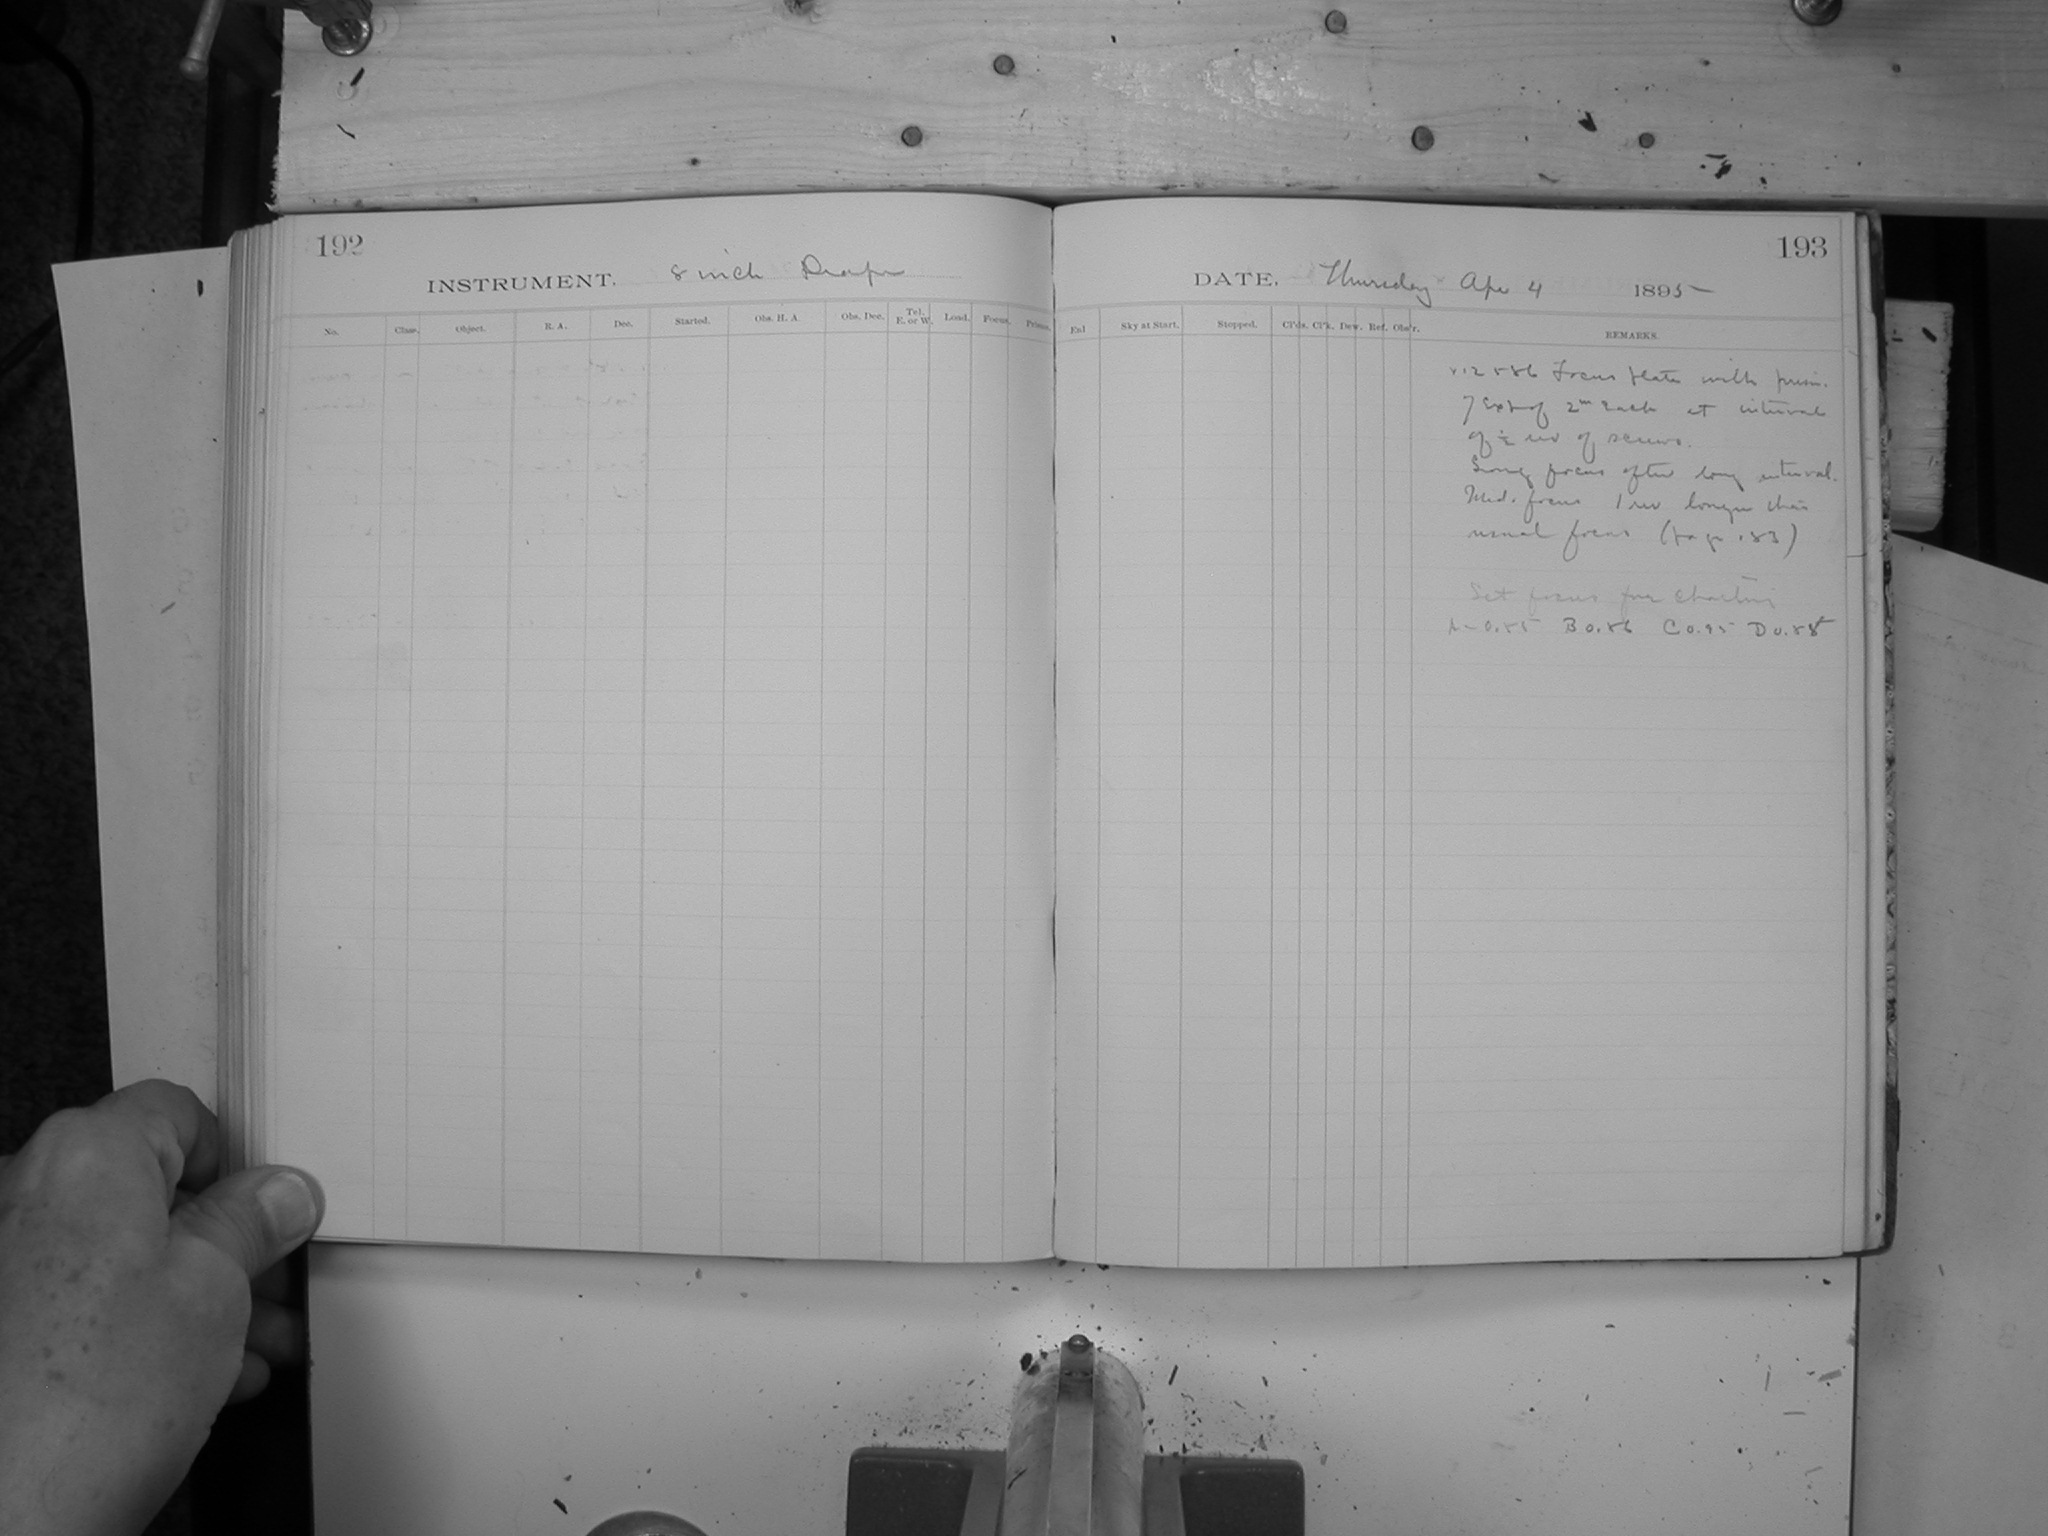 192
INSTRUMENT. 8 inch Draper
No. Class. Object. R. A. Dec. Started. Obs. H. A Obs. Dec. Tel. E. or W. Load. Focus. Prism.
193
DATE, Thursday Apr 4 1895
Enl Sky at Start. Stopped. Cl'ds. Cl'k. Dew. Ref. Obs'r. REMARKS.
Focus plate with prism.
7 Exp of 2m Each at interval
of ½ rev of screws.
focus after long interval.
Med. focus 1 rev longer than
usual focus (page 183)
Set focus for Charting
A-0.85 B 0.86 C 0.95 D 0.88